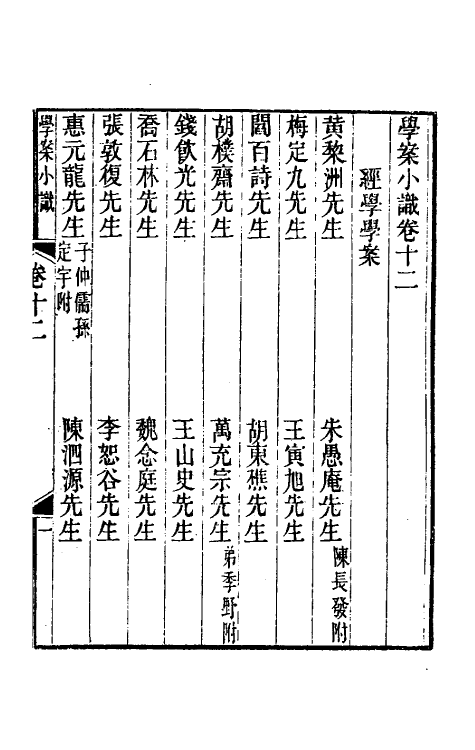 學案小識卷十二
經學學案
黃黎洲先生　朱愚庵先生陳長發附
梅定九先生　王寅旭先生
閻百詩先生　胡東樵先生
胡樸齋先生　萬充宗先生弟季野附
錢飲光先生　王山史先生
喬石林先生　魏念庭先生
張敦復先生　李恕谷先生
惠元龍先生子仲儒孫定宇附　陳泗源先生
學案小識　卷十二　一